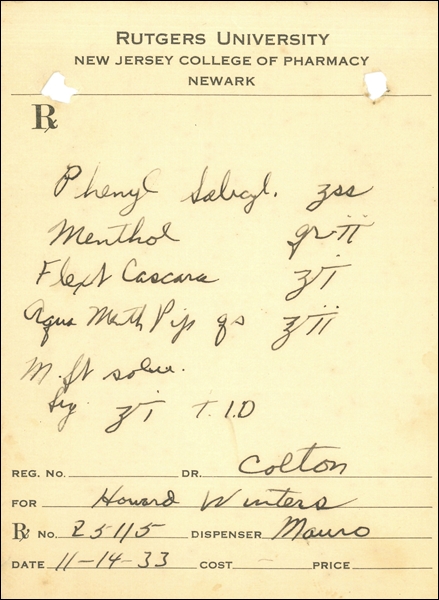 RUTGERS UNIVERSITY
NEW JERSEY COLLEGE OF PHARMACY
NEWARK
℞
Phenyl Salicyl. ʒss
Menthol gr ii
Flext Cascara ʒi
Aqua Menth Pip qs ʒiii
M. ft solu.
Sig ʒi T.I.D
REG. No. DR. Colton
FOR Howard Winters
℞ No. 25115 DISPENSER Mauro
DATE 11-14-33 COST - PRICE